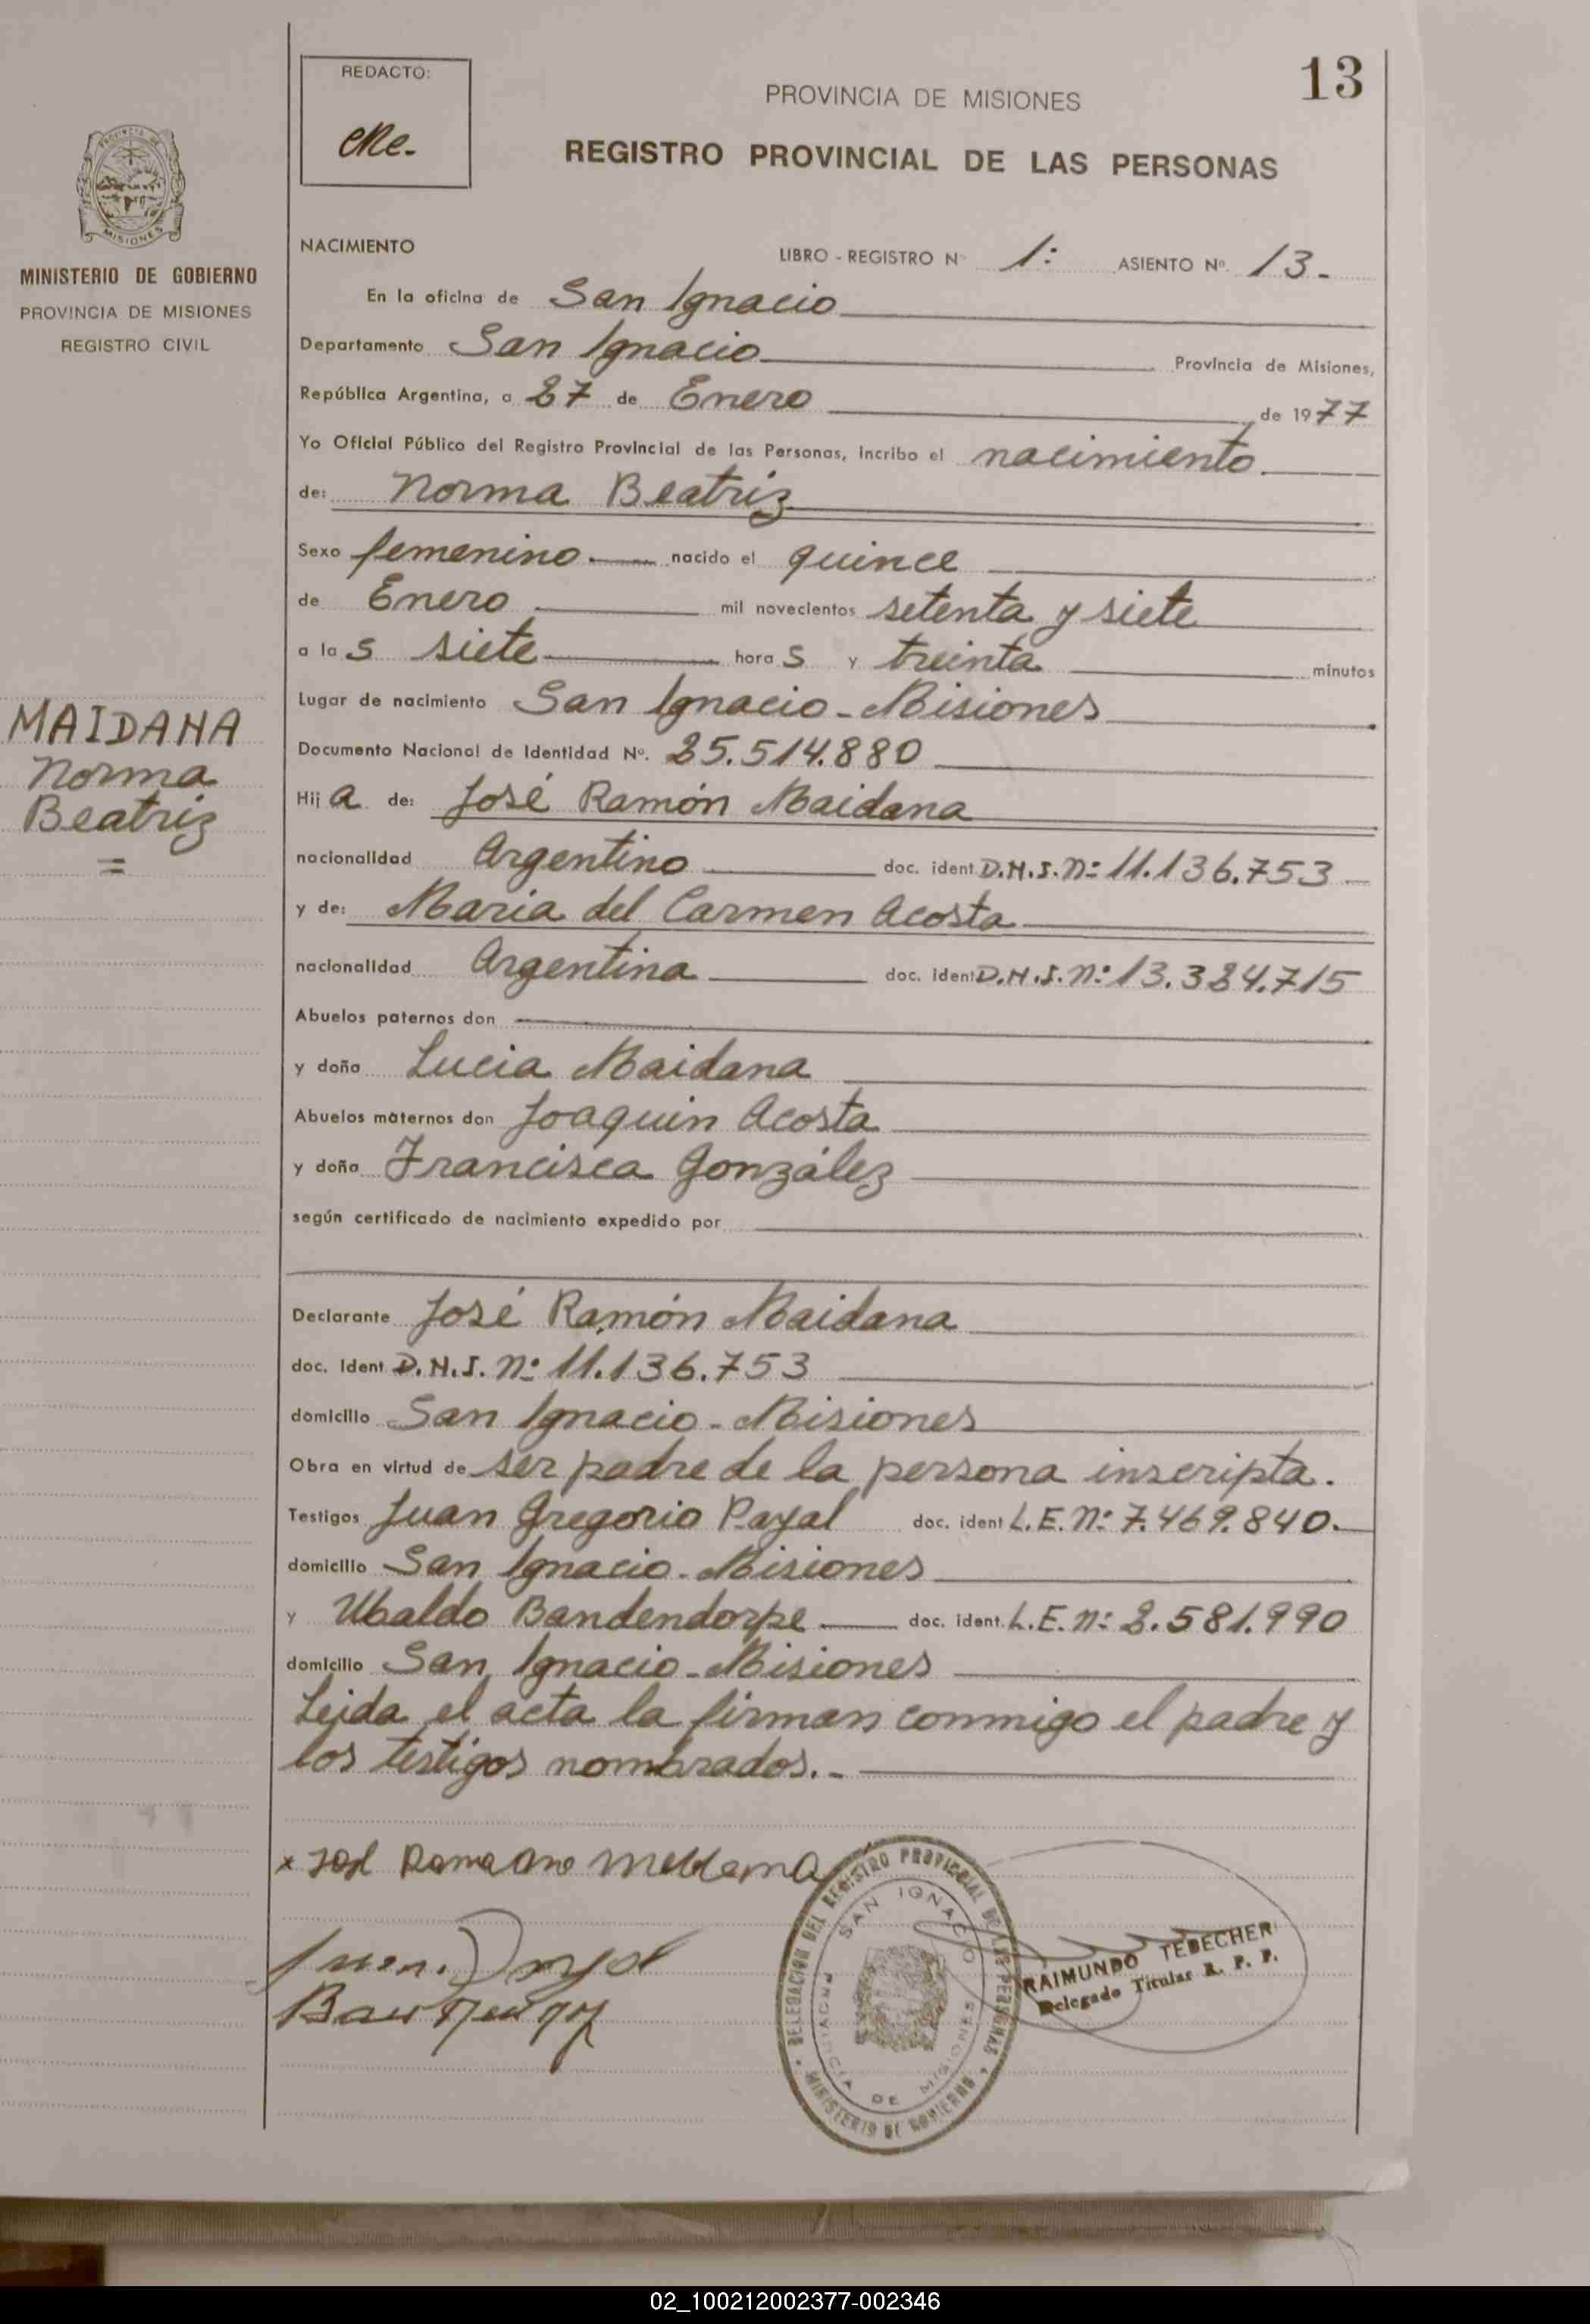 13
REDACTO:
PROVINCIA DE MISIONES
REGISTRO PROVINCIAL DE LAS PERSONAS
MINISTERIO DE GOBIERNO
PROVINCIA DE MISIONES
REGISTRO CIVIL
NACIMIENTO LIBRO - REGISTRO Nº 1: ASIENTO Nº. 13.-
En la oficina de San Ignacio
Departamento San Ignacio Provincia de Misiones,
República Argentina, a 27 de Enero de 1977
Yo Oficial Público del Registro Provincial de las Personas, inscribo el nacimiento.
de: Norma Beatriz
Sexo femenino nacido el quince
de Enero mil novecientos setenta y siete
a las siete horas y treinta minutos
Lugar de nacimiento San Ignacio - Misiones
MAIDANA
Norma
Beatriz
Documento Nacional de Identidad Nº. 25.514.880
Hija de: José Ramón Maidana
nacionalidad Argentino doc. ident D.N.I. Nº: 11.136.753
y de: Maria del Carmen Acosta
nacionalidad Argentina doc. ident D.N.I. Nº: 13.324.715
Abuelos paternos don
y doña Lucia Maidana
Abuelos maternos don Joaquin Acosta
y doña Francisca González
según certificado de nacimiento expedido por
Declarante José Ramón Maidana
doc. ident D.N.I. Nº: 11.136.753
domicilio San Ignacio - Misiones
Obra en virtud de ser padre de la persona inscripta.
Testigos Juan Gregorio Payal doc. ident L.E. Nº: 7.469.840.
domicilio San Ignacio - Misiones
y Ubaldo Bandendorpe doc. ident. L.E. Nº: 2.581.990
domicilio San Ignacio - Misiones
Leida el acta la firman conmigo el padre y
los testigos nombrados.-
DELEGACION DEL REGISTRO PROVINCIAL DE LAS PERSONAS
SAN IGNACIO
PROVINCIA DE MISIONES
MINISTERIO DE GOBIERNO
RAIMUNDO TEBECHERI
Delegado Titular R. P. P.
02_100212002377-002346